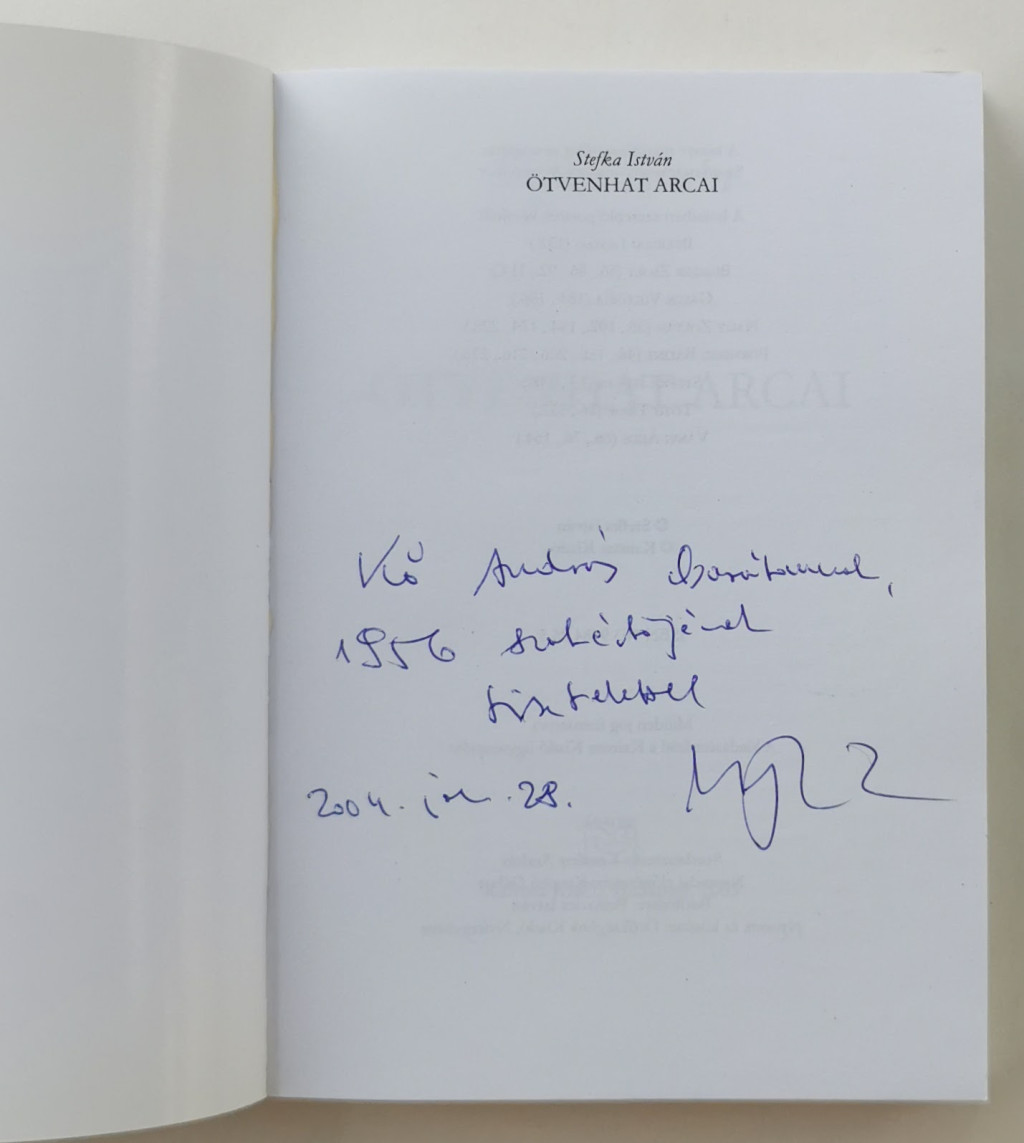 Stefka István
ÖTVENHAT ARCAI
Kő András barátomnak,
1956 szakértőjének
tisztelettel
2004. jún. 28.